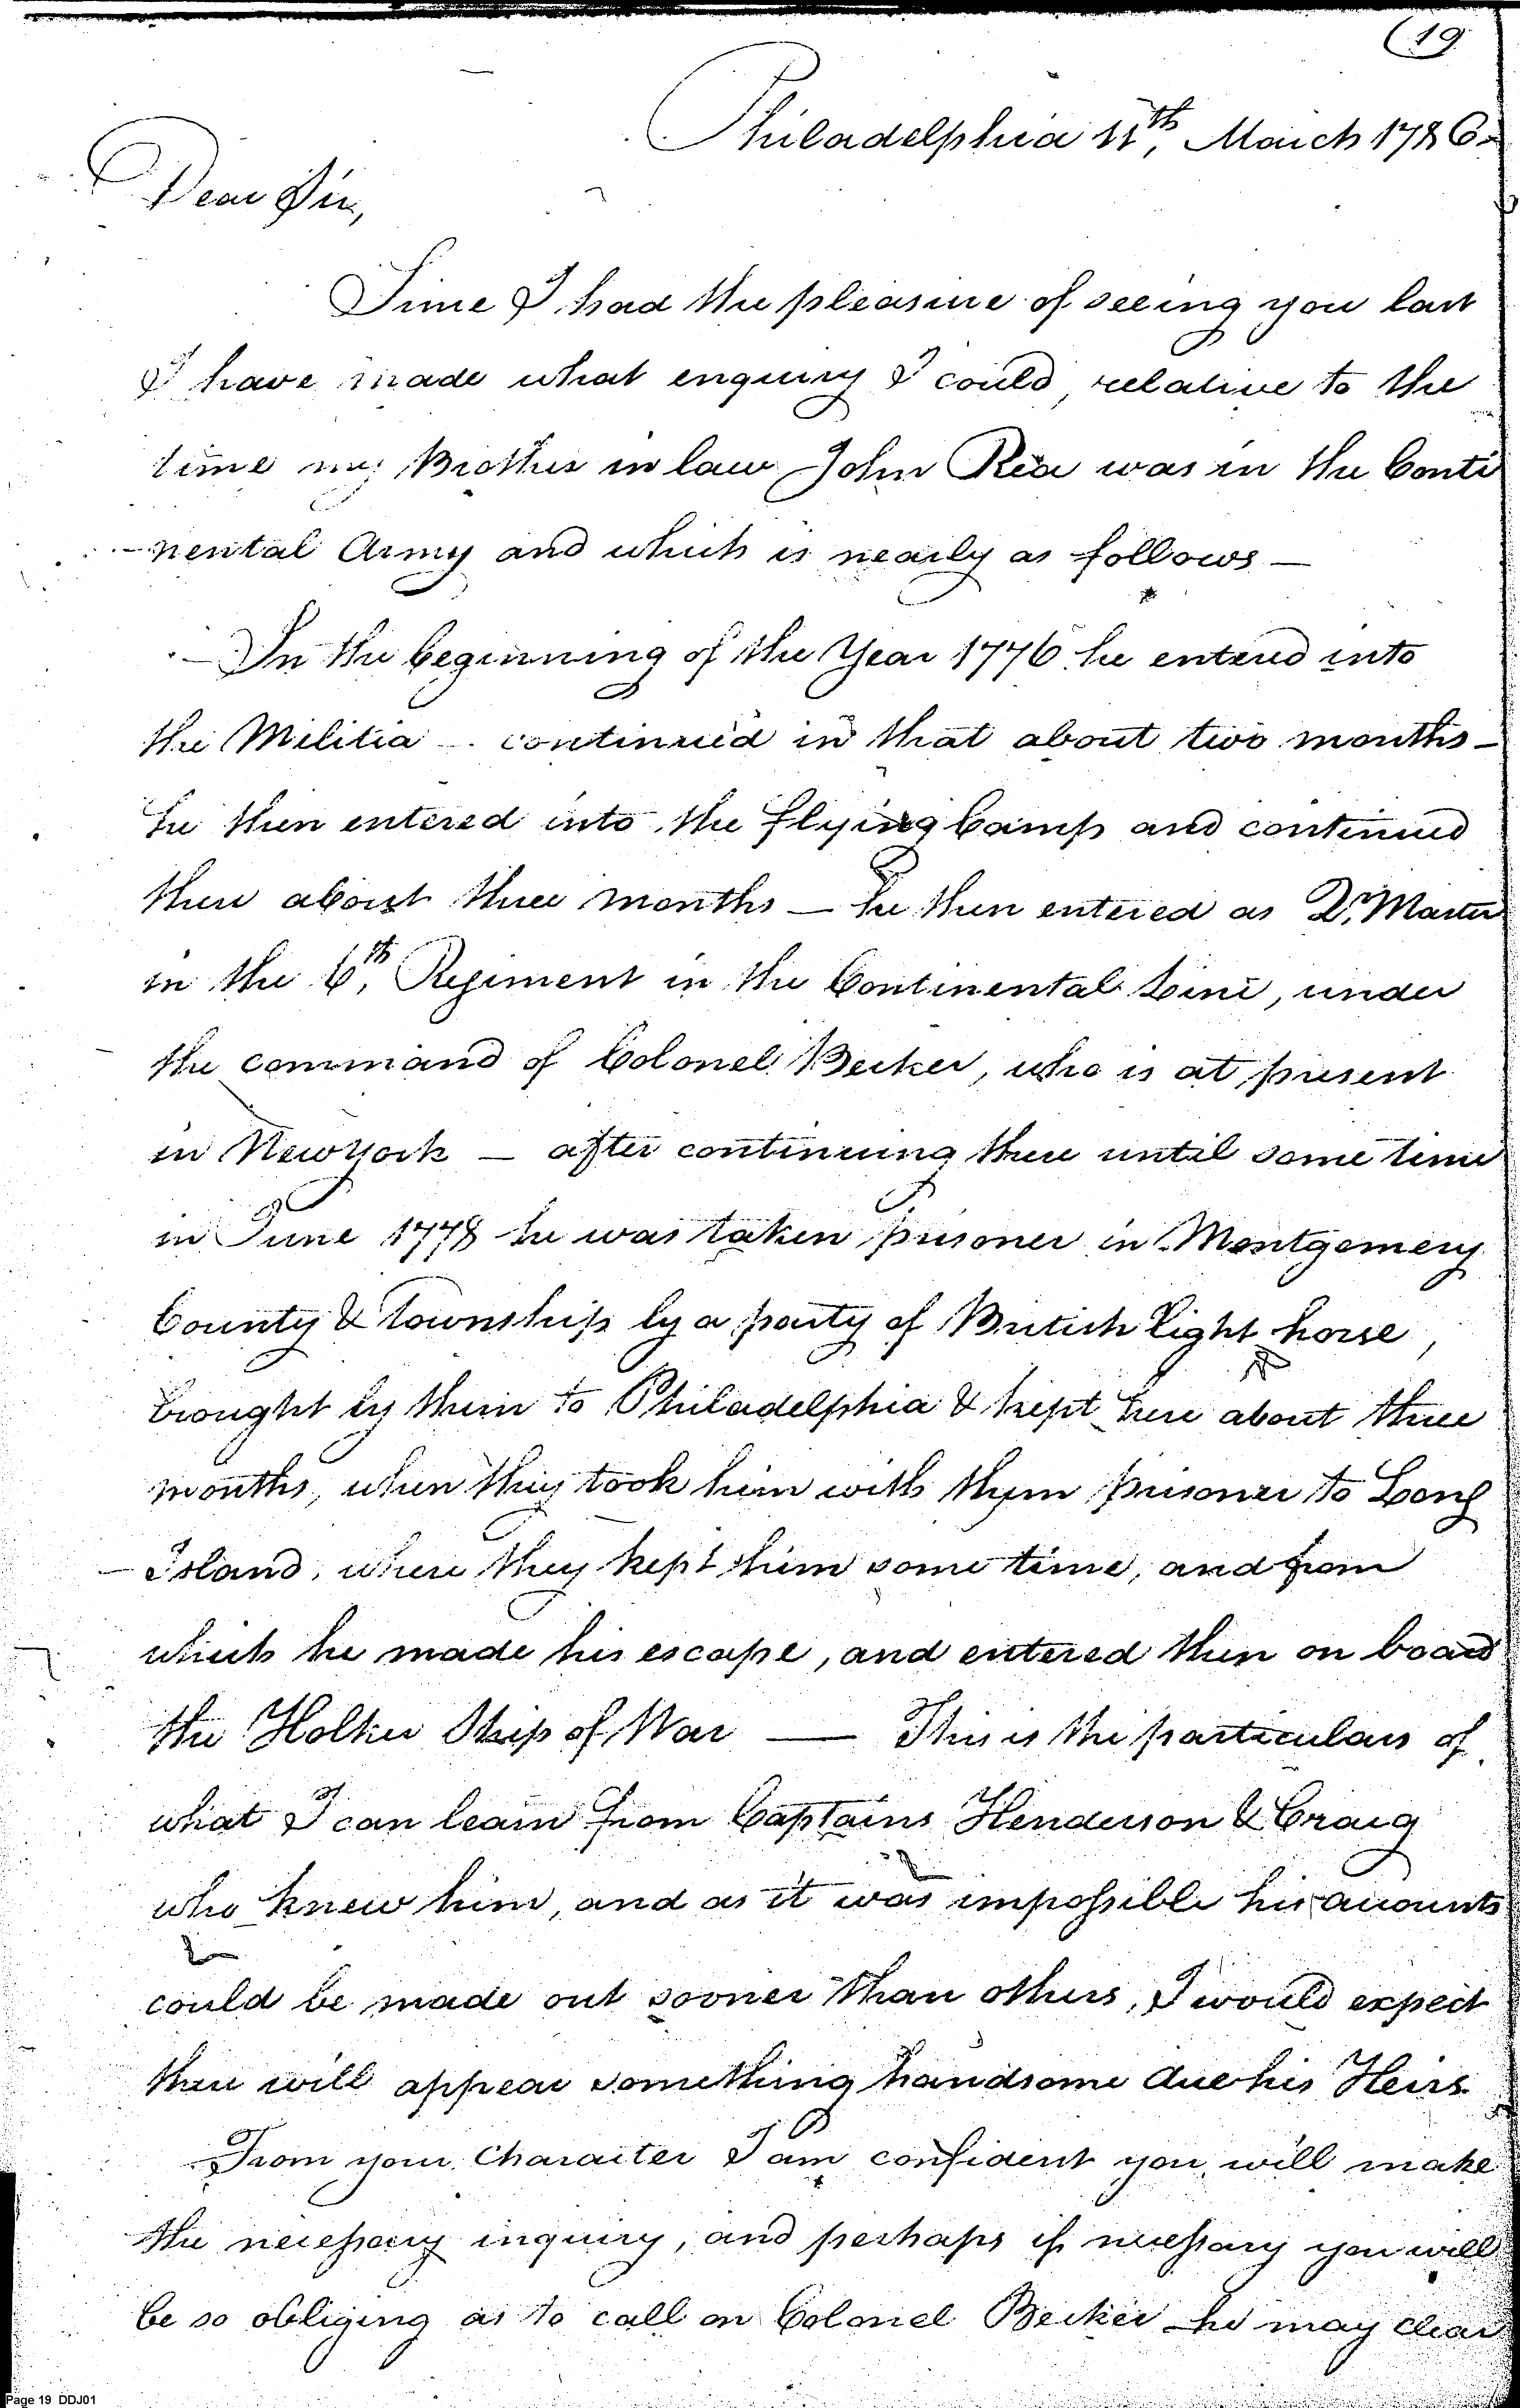 (19
Philadelphia 11th, March 1786.
Dear Sir,
Since I had the pleasure of seeing you last
I have made what enquiry I could, relative to the
time my Brother in law John Rea was in the Conti
-nental Army and which is nearly as follows —
— In the beginning of the Year 1776 he entered into
the Militia — continued in that about two months —
he then entered into the flying Camp and continued
there about three months — he then entered as Qr. Master
in the 6th, Regiment in the Continental Line, under
the command of Colonel Becker, who is at present
in New York — after continuing there until some time
in June 1778 he was taken prisoner in Montgomery
County & Township by a party of British light horse,
brought by them to Philadelphia & kept here about three
months, when they took him with them prisoner to Long
-Island, where they kept him some time, and from
which he made his escape, and entered then on board
the Holker Ship of War — This is the particulars of
what I can learn from Captains Henderson & Craig
who knew him, and as it was impossible his accounts
could be made out sooner than others, I would expect
there will appear something handsome due his Heirs
From your Character I am confident you will make
the necessary inquiry, and perhaps if necessary you will
be so obliging as to call on Colonel Becker he may clear
Page 19 DDJ01